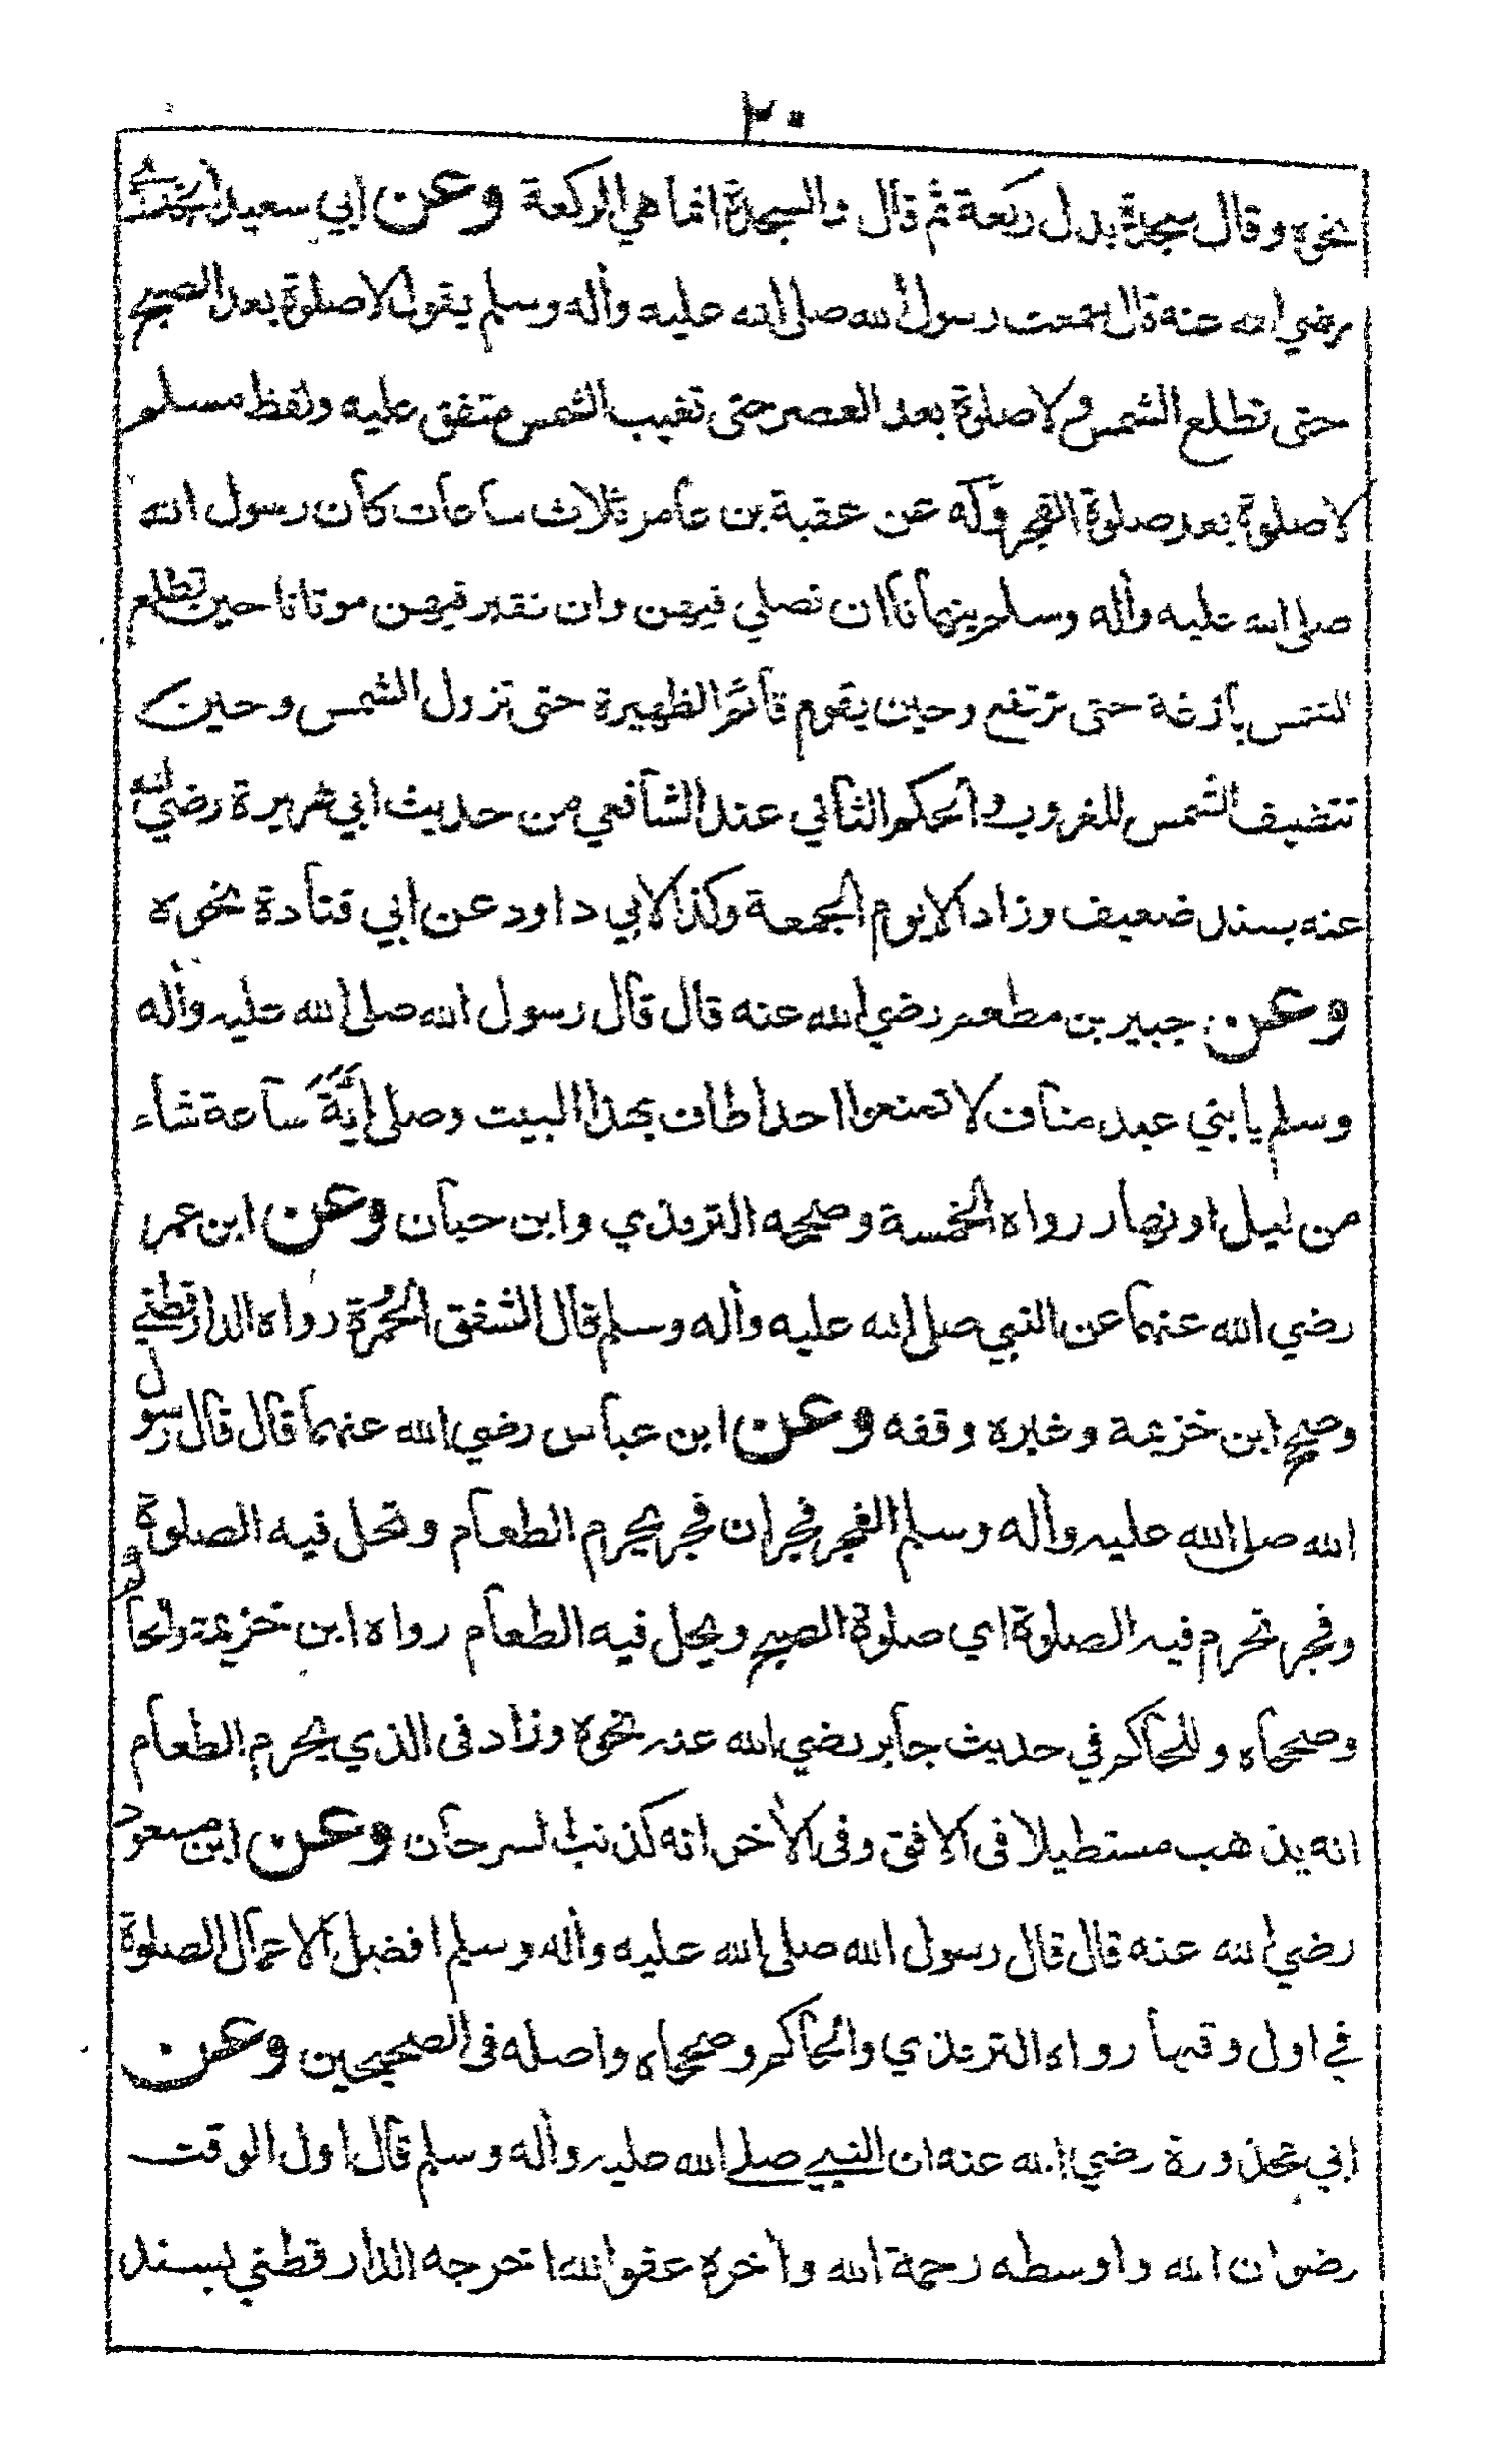 ٢٠
نحوه وقال سجدة بدل ركعة ثم قال والسجدة انما هي الركعة وعن ابي سعيد الخدري
رضي الله عنه قال سمعت رسول الله صلى الله عليه وأله وسلم يقول لا صلوة بعد الصبح
حتى تطلع الشمس ولا صلوة بعد العصر حتى تغيب الشمس متفق عليه ولفظ مسلم
لا صلوة بعد صلوة الفجر وله عن عقبة بن عامر ثلاث ساعات كان رسول الله
صلى الله عليه وأله وسلم ينهانا ان نصلي فيهن وان نقبر فيهن موتانا حين تطلع
الشمس بازغة حتى ترتفع وحين يقوم قائم الظهيرة حتى تزول الشمس وحين
تتضيف الشمس للغروب والحكم الثاني عند الشافعي من حديث ابي هريرة رضي الله
عنه بسند ضعيف وزاد الا يوم الجمعة وكذا لابي داود عن ابي قتادة نحوه
وعن جبير بن مطعم رضي الله عنه قال قال رسول الله صلى الله عليه وأله
وسلم يا بني عبد مناف لا تمنعوا احدا طاف بهذا البيت وصلى اية ساعة شاء
من ليل او نهار رواه الخمسة وصححه الترمذي وابن حبان وعن ابن عمر
رضي الله عنهما عن النبي صلى الله عليه وأله وسلم قال الشفق الحمرة رواه الدارقطني
وصحح ابن خزيمة وغيره وقفه وعن ابن عباس رضي الله عنهما قال قال رسول
الله صلى الله عليه وأله وسلم الفجر فجران فجر يحرم الطعام وتحل فيه الصلوة
وفجر تحرم فيه الصلوة اي صلوة الصبح ويحل فيه الطعام رواه ابن خزيمة والحاكم
وصححاه وللحاكم في حديث جابر رضي الله عنه نحوه وزاد في الذي يحرم الطعام
انه يذهب مستطيلا في الافق وفي الأخر انه كذنب السرحان وعن ابن مسعود
رضي الله عنه قال قال رسول الله صلى الله عليه وأله وسلم افضل الاعمال الصلوة
في اول وقتها رواه الترمذي والحاكم وصححاه واصله في الصحيحين وعن
ابي محذورة رضي الله عنه ان النبي صلى الله عليه وأله وسلم قال اول الوقت
رضوان الله واوسطه رحمة الله وأخره عفو الله اخرجه الدارقطني بسند